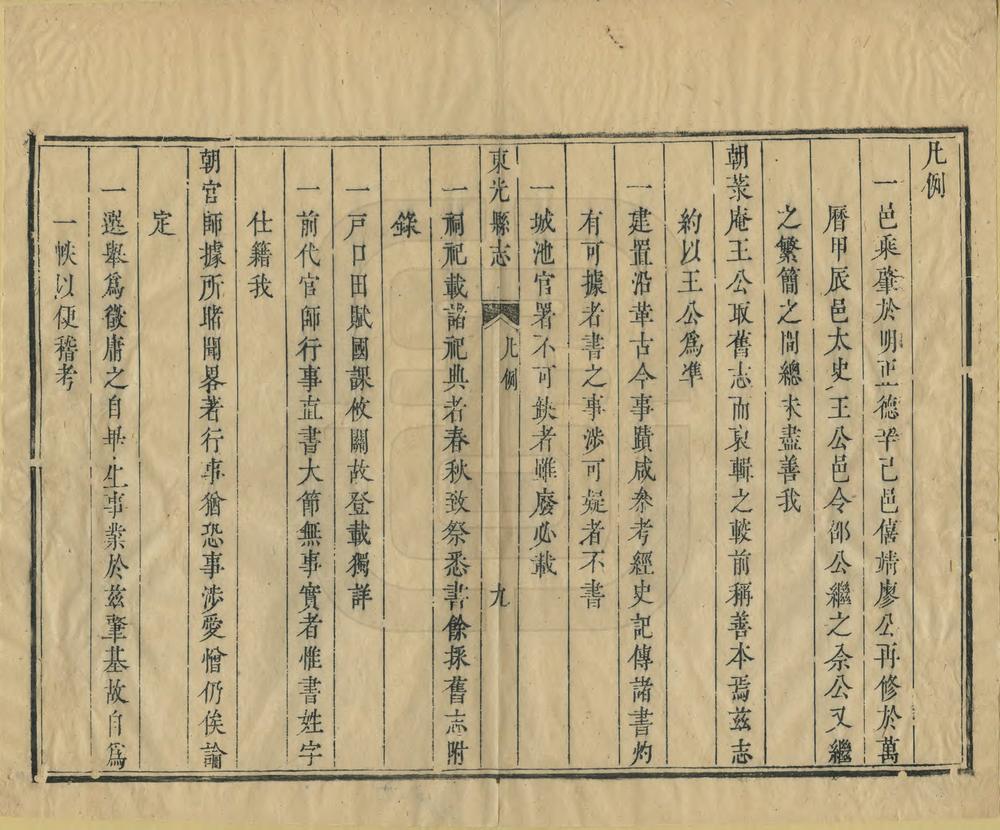 凡例
一邑乘肇於明正德辛己邑僖靖廖公再修於萬
曆甲辰邑太史王公邑令邵公繼之余公又繼
之繁簡之間總未盡善我
朝菉庵王公取舊志而裒輯之較前稱善本焉兹志
約以王公爲準
一建置沿革古今事蹟咸參考經史記傳諸書灼
有可據者書之事涉可疑者不書
一城池官署不可缺者雖廢必載
東光縣志
凡例
九
一祠祀載諸祀典者春秋致祭悉書餘採舊志附
錄
一戸口田賦國課攸關故登載獨詳
一前代官師行事直書大節無事實者惟書姓字
仕籍我
朝官師據所睹聞畧著行事猶恐事涉愛憎仍俟論
定
一選舉爲徵庸之自畢生事業於兹肇基故自爲
一帙以便稽考